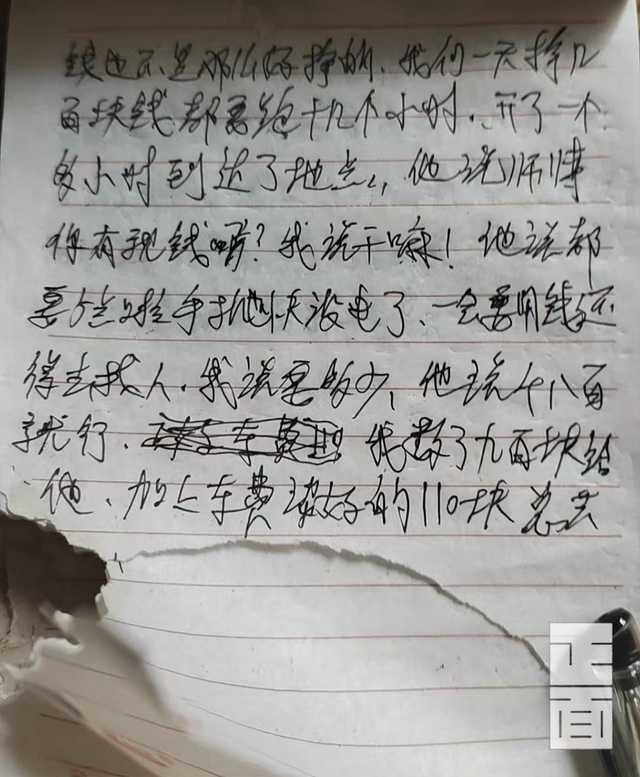 钱也不是那么好挣的、我们一天挣几
百块钱都要跑十几个小时.开了一个
多小时到达了地点,他说师傅
你有现钱?我说干嘛!他说都
要5点手机快没电了、一会要用钱还
得去找人.我说要多少,他说千八百
就行、我数了九百块给
他、加上车费好的110块总共
正面